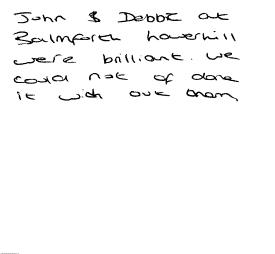 John & Debbie at
Balmforth haverhill
were brilliant. we
could not of done
it with out them,